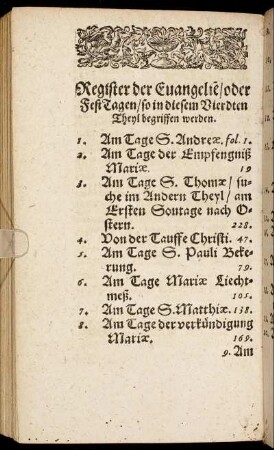 Register der Euangeliẽ/oder
FestTagen/so in diesem Vierdten
Theyl begriffen werden.
1. Am Tage S. Andreæ. fol. 1.
2. Am Tage der Empfengniß
Mariæ. 19
3. Am Tage S. Thomæ/su-
che im Andern Theyl/am
Ersten Sontage nach O-
stern. 228.
4. Von der Tauffe Christi. 47.
5. Am Tage S. Pauli Beke-
rung. 79.
6. Am Tage Mariæ Liecht-
meß. 105.
7. Am Tage S. Matthiæ. 138.
8. Am Tage der verkündigung
Mariæ. 169.
9. Am